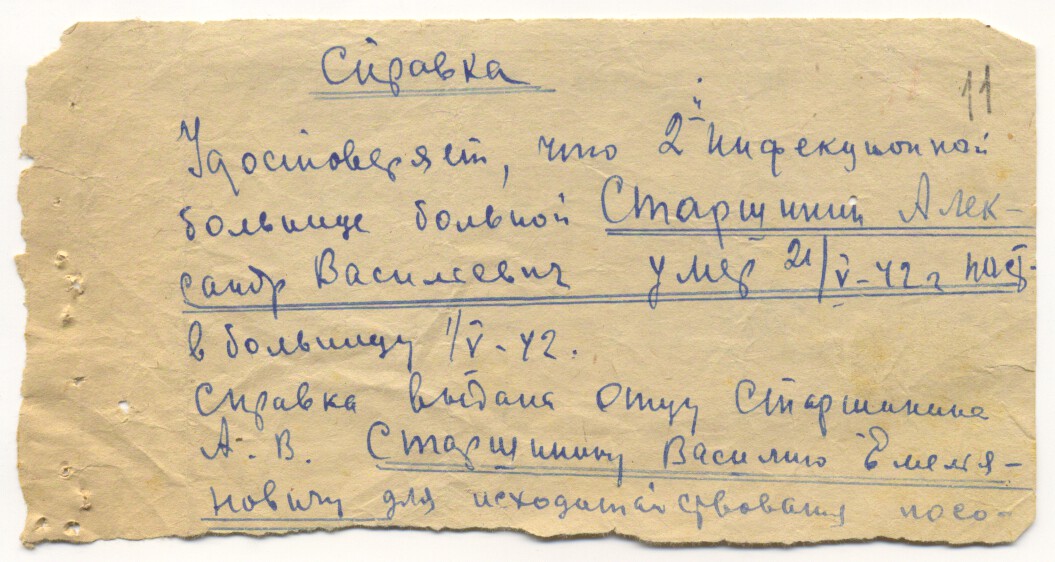 Справка
11
Удостоверяет, что 2й Инфекционной
больнице больной Старшинин Алек-
сандр Васильевич умер 21/V-42 г пост.
в больницу 1/V-42.
Справка выдана отцу Старшинина
А. В. Старшинину Василию Емелья-
новичу для исходатайствования посо-